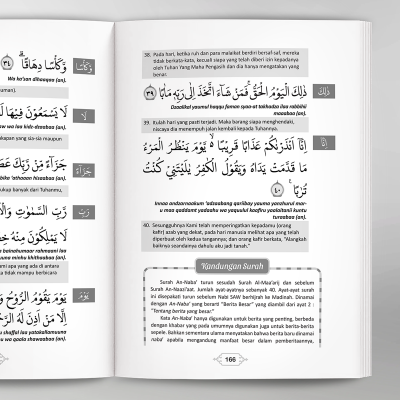 وَكَأْسًا
وَكَأْسًا دِهَاقًا ﴿٣٤﴾
Wa ka'san dihaaqaa (an).
لَا
لَا يَسْمَعُوْنَ فِيْهَا
جَزَآءً
جَزَآءً مِّنْ رَّبِّكَ عَطَ
cukup banyak dari Tuhanmu,
رَبِّ
رَبِّ السَّمٰوٰتِ وَالْاَ
لَا يَمْلِكُوْنَ مِنْهُ خِطَ
ami apa yang ada di antara
يَوْمَ
يَوْمَ يَقُوْمُ الرُّوْحُ وَ
اِلَّا مَنْ اَذِنَ لَهُ الرَّ
38. Pada hari, ketika ruh dan para malaikat berdiri bersaf-saf, mereka
tidak berkata-kata, kecuali siapa yang telah diberi izin kepadanya
oleh Tuhan Yang Maha Pengasih dan dia hanya mengatakan yang
benar.
ذٰلِكَ
ذٰلِكَ الْيَوْمُ الْحَقُّ ۚ فَمَنْ شَآءَ اتَّخَذَ اِلٰى رَبِّهٖ مَاٰبًا ﴿٣٩﴾
Dzaalikal yaumul haqqu faman syaa-at takhadza ilaa rabbihii
maaabaa (an).
39. Itulah hari yang pasti terjadi. Maka barang siapa menghendaki,
niscaya dia menempuh jalan kembali kepada Tuhannya.
اِنَّآ
اِنَّآ اَنْذَرْنٰكُمْ عَذَابًا قَرِيْبًا ۙ يَّوْمَ يَنْظُرُ الْمَرْءُ
مَا قَدَّمَتْ يَدَاهُ وَيَقُوْلُ الْكٰفِرُ يٰلَيْتَنِيْ كُنْتُ
تُرٰبًا ﴿٤٠﴾
Innaa andzarnaakum 'adzaaban qariibay yauma yanzhurul mar-
u maa qaddamt yadaahu wa yaquulul kaafiru yaalaitanii kuntu
turaabaa (an).
40. Sesungguhnya Kami telah memperingatkan kepadamu (orang
kafir) azab yang dekat, pada hari manusia melihat apa yang telah
diperbuat oleh kedua tangannya; dan orang kafir berkata, "Alangkah
baiknya seandainya dahulu aku jadi tanah."
Kandungan Surah
Surah An-Naba' turun sesudah Surah Al-Maa'arij dan sebelum
Surah An-Naazi'aat. Jumlah ayat-ayatnya sebanyak 40. Ayat-ayat surah
ini disepakati turun sebelum Nabi SAW berhijrah ke Madinah. Dinamai
dengan An-Naba' yang berarti "Berita Besar" yang diambil dari ayat 2 :
"Tentang berita yang besar."
Kata An-Naba' hanya digunakan untuk berita yang penting, berbeda
dengan khabar yang pada umumnya digunakan juga untuk berita-berita
sepele. Bahkan sementara ulama menyatakan bahwa berita baru dinamai
naba' apabila mengandung manfaat besar dalam pemberitaannya,
166